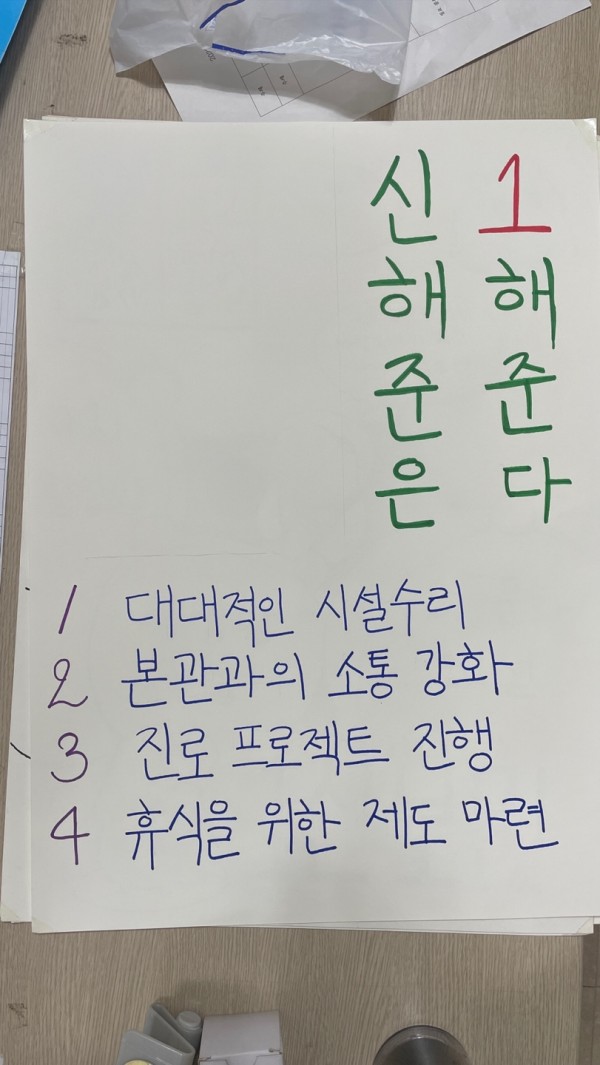 신해준은
1해준다
1 대대적인 시설수리
2 본관과의 소통 강화
3 진로 프로젝트 진행
4 휴식을 위한 제도 마련